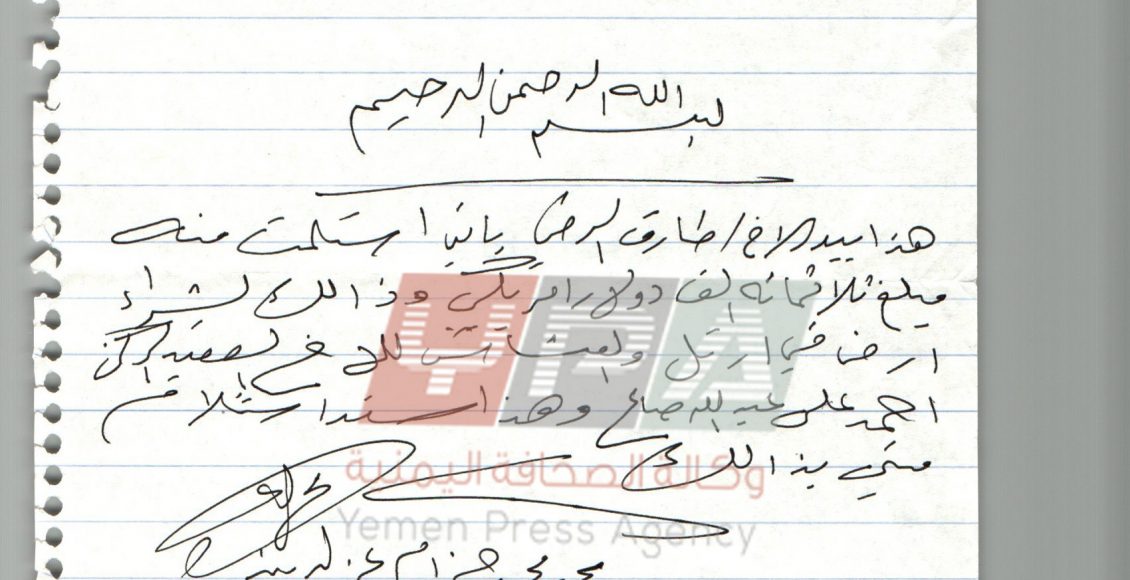 بسم الله الرحمن الرحيم
هذا بيد الاخ / طارق الرضي بانني استلمت منه
مبلغ ثلاثمائه الف دولار امريكي وذالك لشراء
ارض في ارتل والعشاش للاخ العميد الركن
احمد علي عبدالله صالح وهذا سند استلام
مني بذالك
وكالة الصحافة اليمنية
YPA
Yemen Press Agency